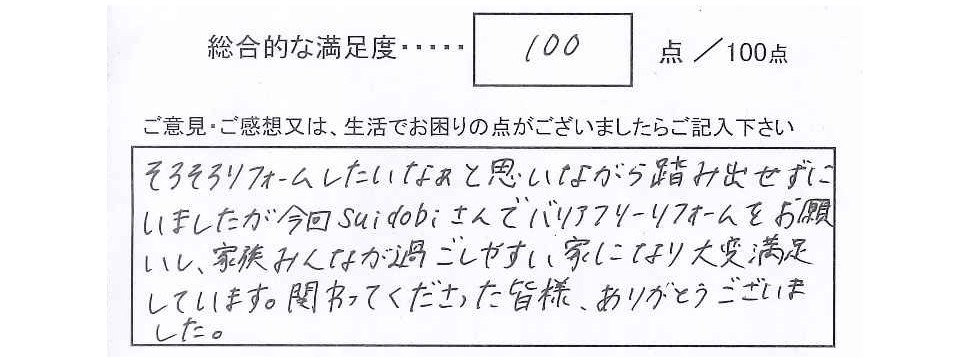 総合的な満足度・・・・・ 100 点 ／100点
ご意見・ご感想又は、生活でお困りの点がございましたらご記入下さい
そろそろリフォームしたいなぁと思いながら踏み出せずに
いましたが今回suidobiさんでバリアフリーリフォームをお願
いし、家族みんなが過ごしやすい家になり大変満足
しています。関わってくださった皆様、ありがとうございま
した。